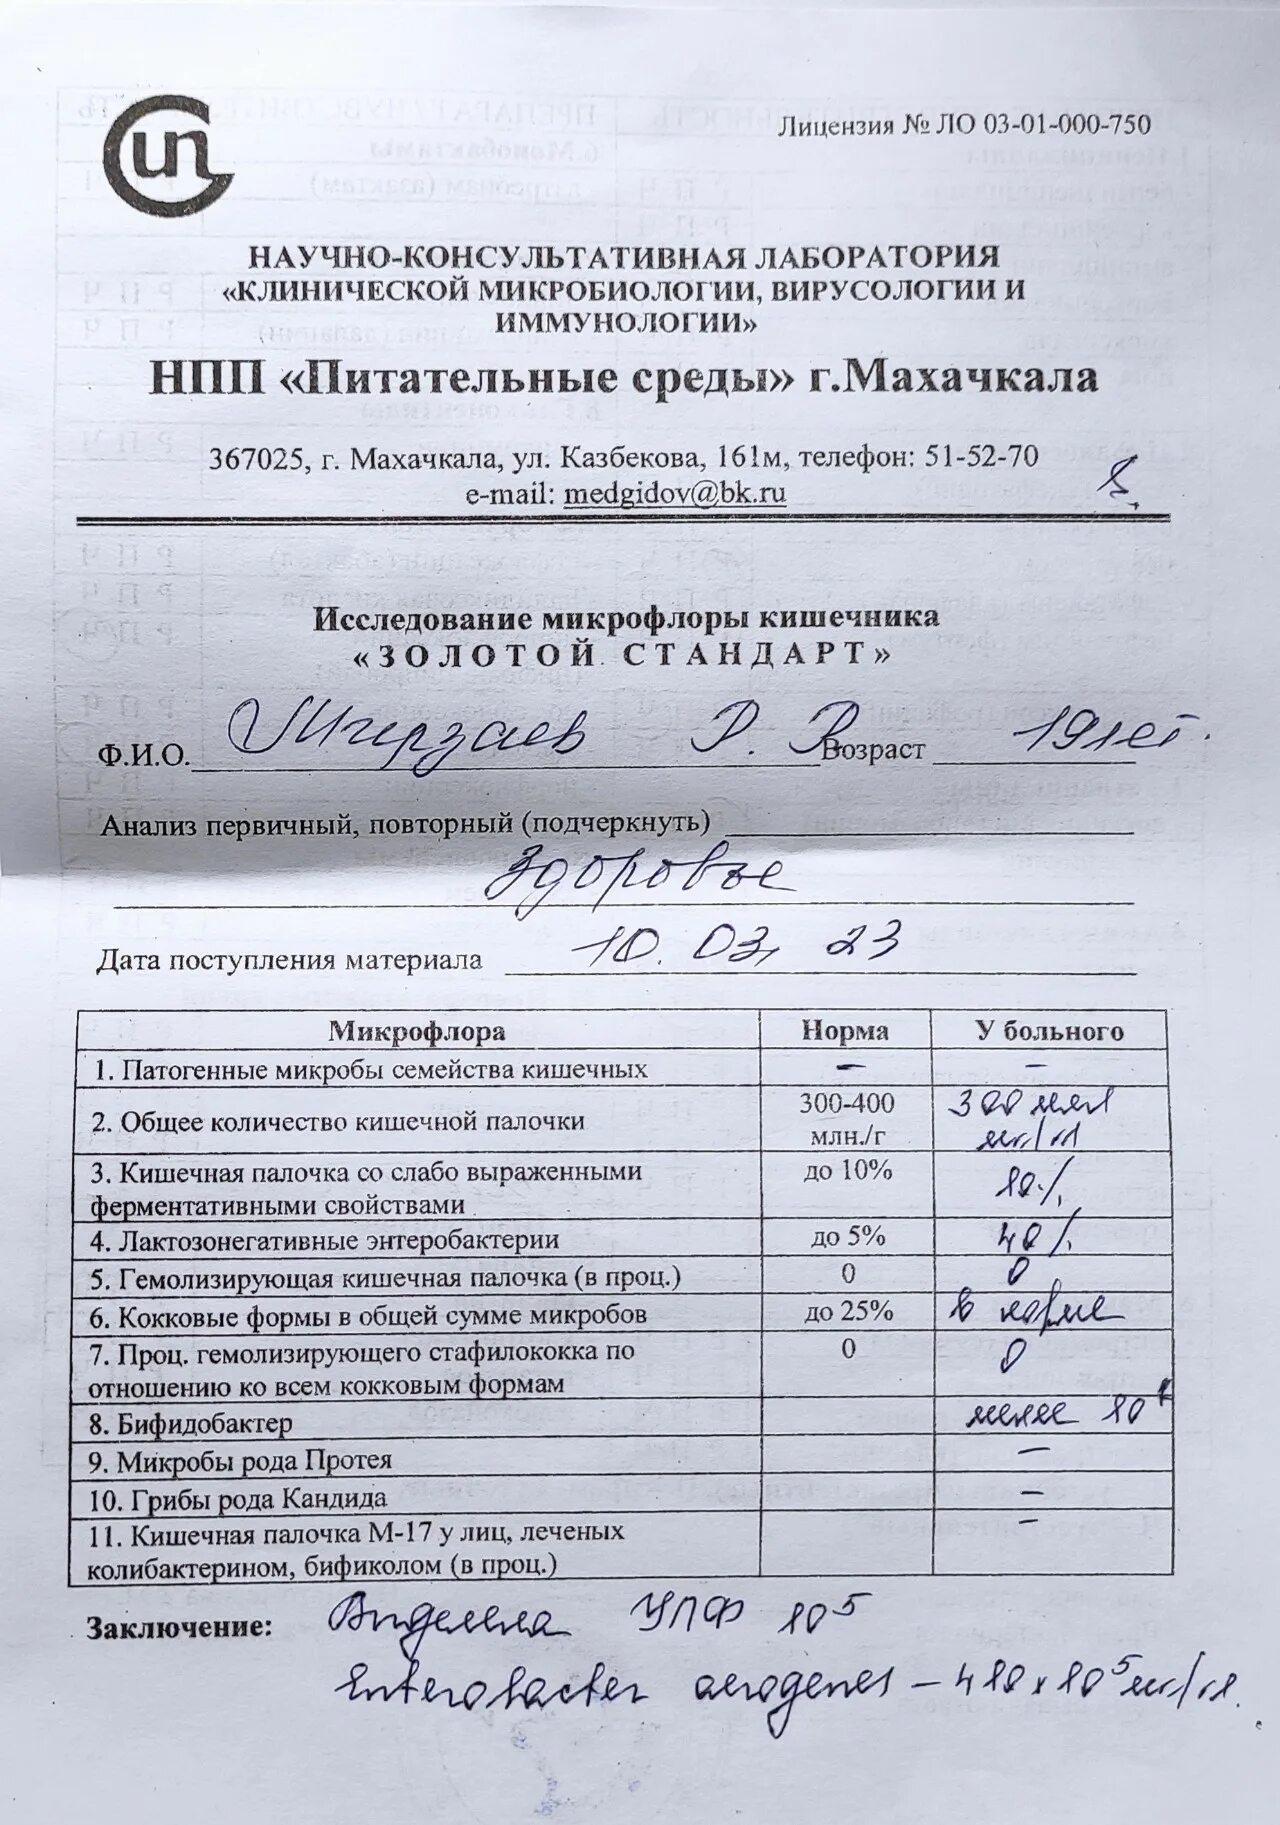 Лицензия № ЛО 03-01-000-750
НАУЧНО-КОНСУЛЬТАТИВНАЯ ЛАБОРАТОРИЯ
«КЛИНИЧЕСКОЙ МИКРОБИОЛОГИИ, ВИРУСОЛОГИИ И
ИММУНОЛОГИИ»
НПП «Питательные среды» г.Махачкала
367025, г. Махачкала, ул. Казбекова, 161м, телефон: 51-52-70
e-mail: medgidov@bk.ru
Исследование микрофлоры кишечника
«ЗОЛОТОЙ СТАНДАРТ»
Ф.И.О. Мирзаев Р. Р. Возраст 19 лет.
Анализ первичный, повторный (подчеркнуть)
Здоровье
Дата поступления материала 10. 03. 23
Микрофлора Норма У больного
1. Патогенные микробы семейства кишечных – –
2. Общее количество кишечной палочки 300-400 млн./г 300 млн
3. Кишечная палочка со слабо выраженными до 10% 10%
ферментативными свойствами
4. Лактозонегативные энтеробактерии до 5% 40%
5. Гемолизирующая кишечная палочка (в проц.) 0 0
6. Кокковые формы в общей сумме микробов до 25% в норме
7. Проц. гемолизирующего стафилококка по 0 0
отношению ко всем кокковым формам
8. Бифидобактер менее
9. Микробы рода Протея –
10. Грибы рода Кандида –
11. Кишечная палочка М-17 у лиц, леченых –
колибактерином, бификолом (в проц.)
Заключение: УПФ 10⁵
Enterobacter aerogenes –